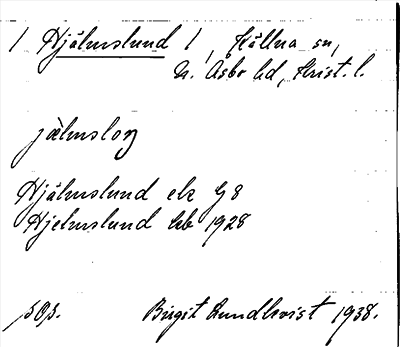 1 Hjälmslund 1, Källna sn,
N. Åsbo hd, Krist. l.
jälmsloŋ
Hjälmslund ek G 8
Hjelmslund kb 1928
pop.
Birgit Lundkvist 1938.